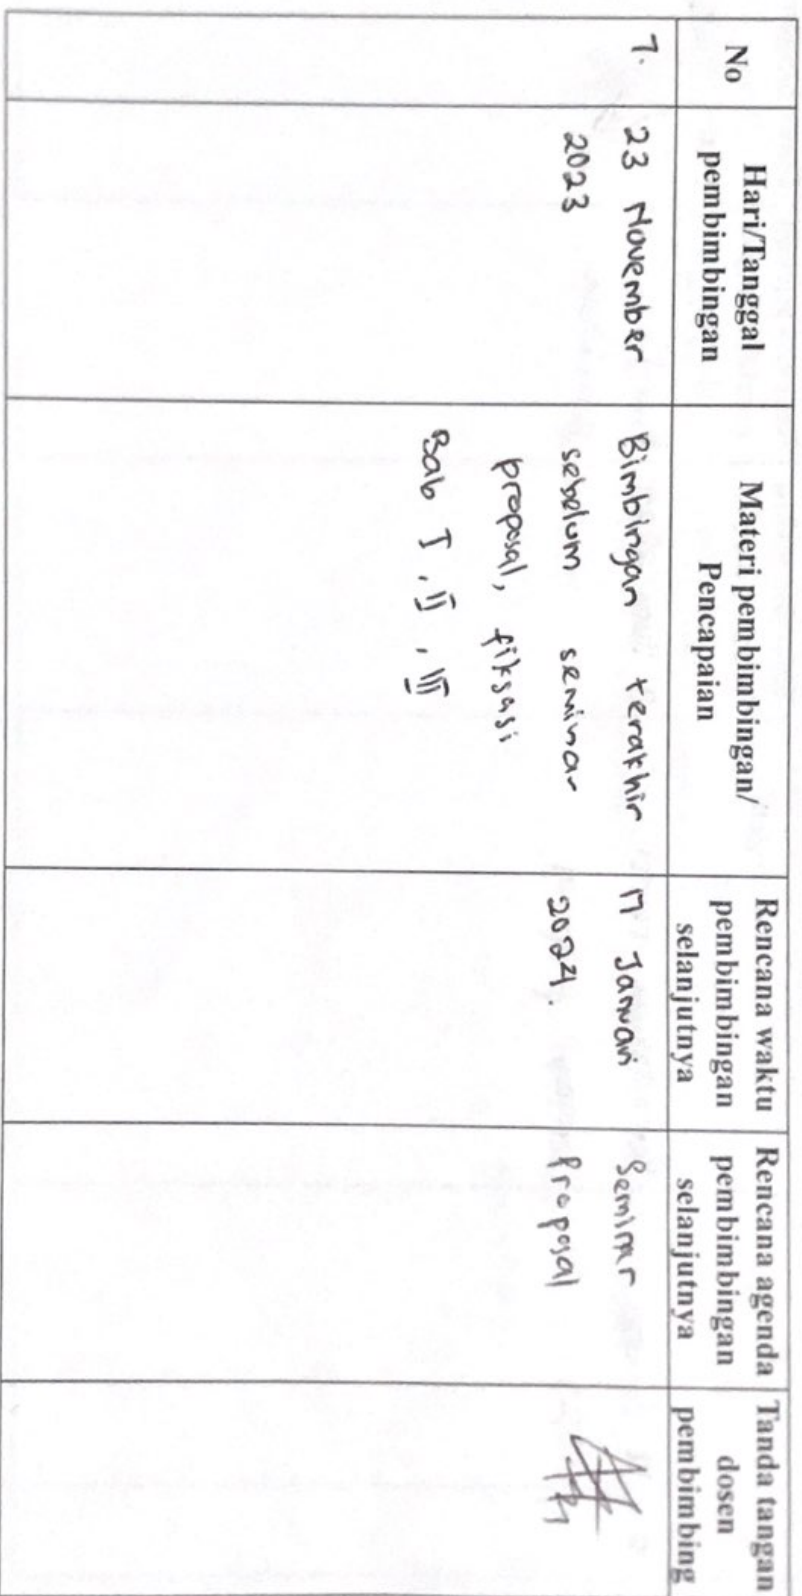 No
Hari/Tanggal
pembimbingan
Materi pembimbingan/
Pencapaian
Rencana waktu
pembimbingan
selanjutnya
Rencana agenda
pembimbingan
selanjutnya
Tanda tangan
dosen
pembimbing
7.
23 November
2023
Bimbingan terakhir
sebelum seminar
proposal, fiksasi
Bab I, II, III
17 Januari
2024.
Seminar
Proposal